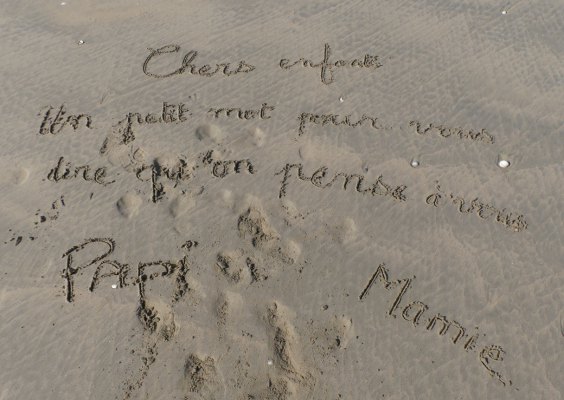 Chers enfants
Un petit mot pour vous
dire qu'on pense à vous
Papi Mamie